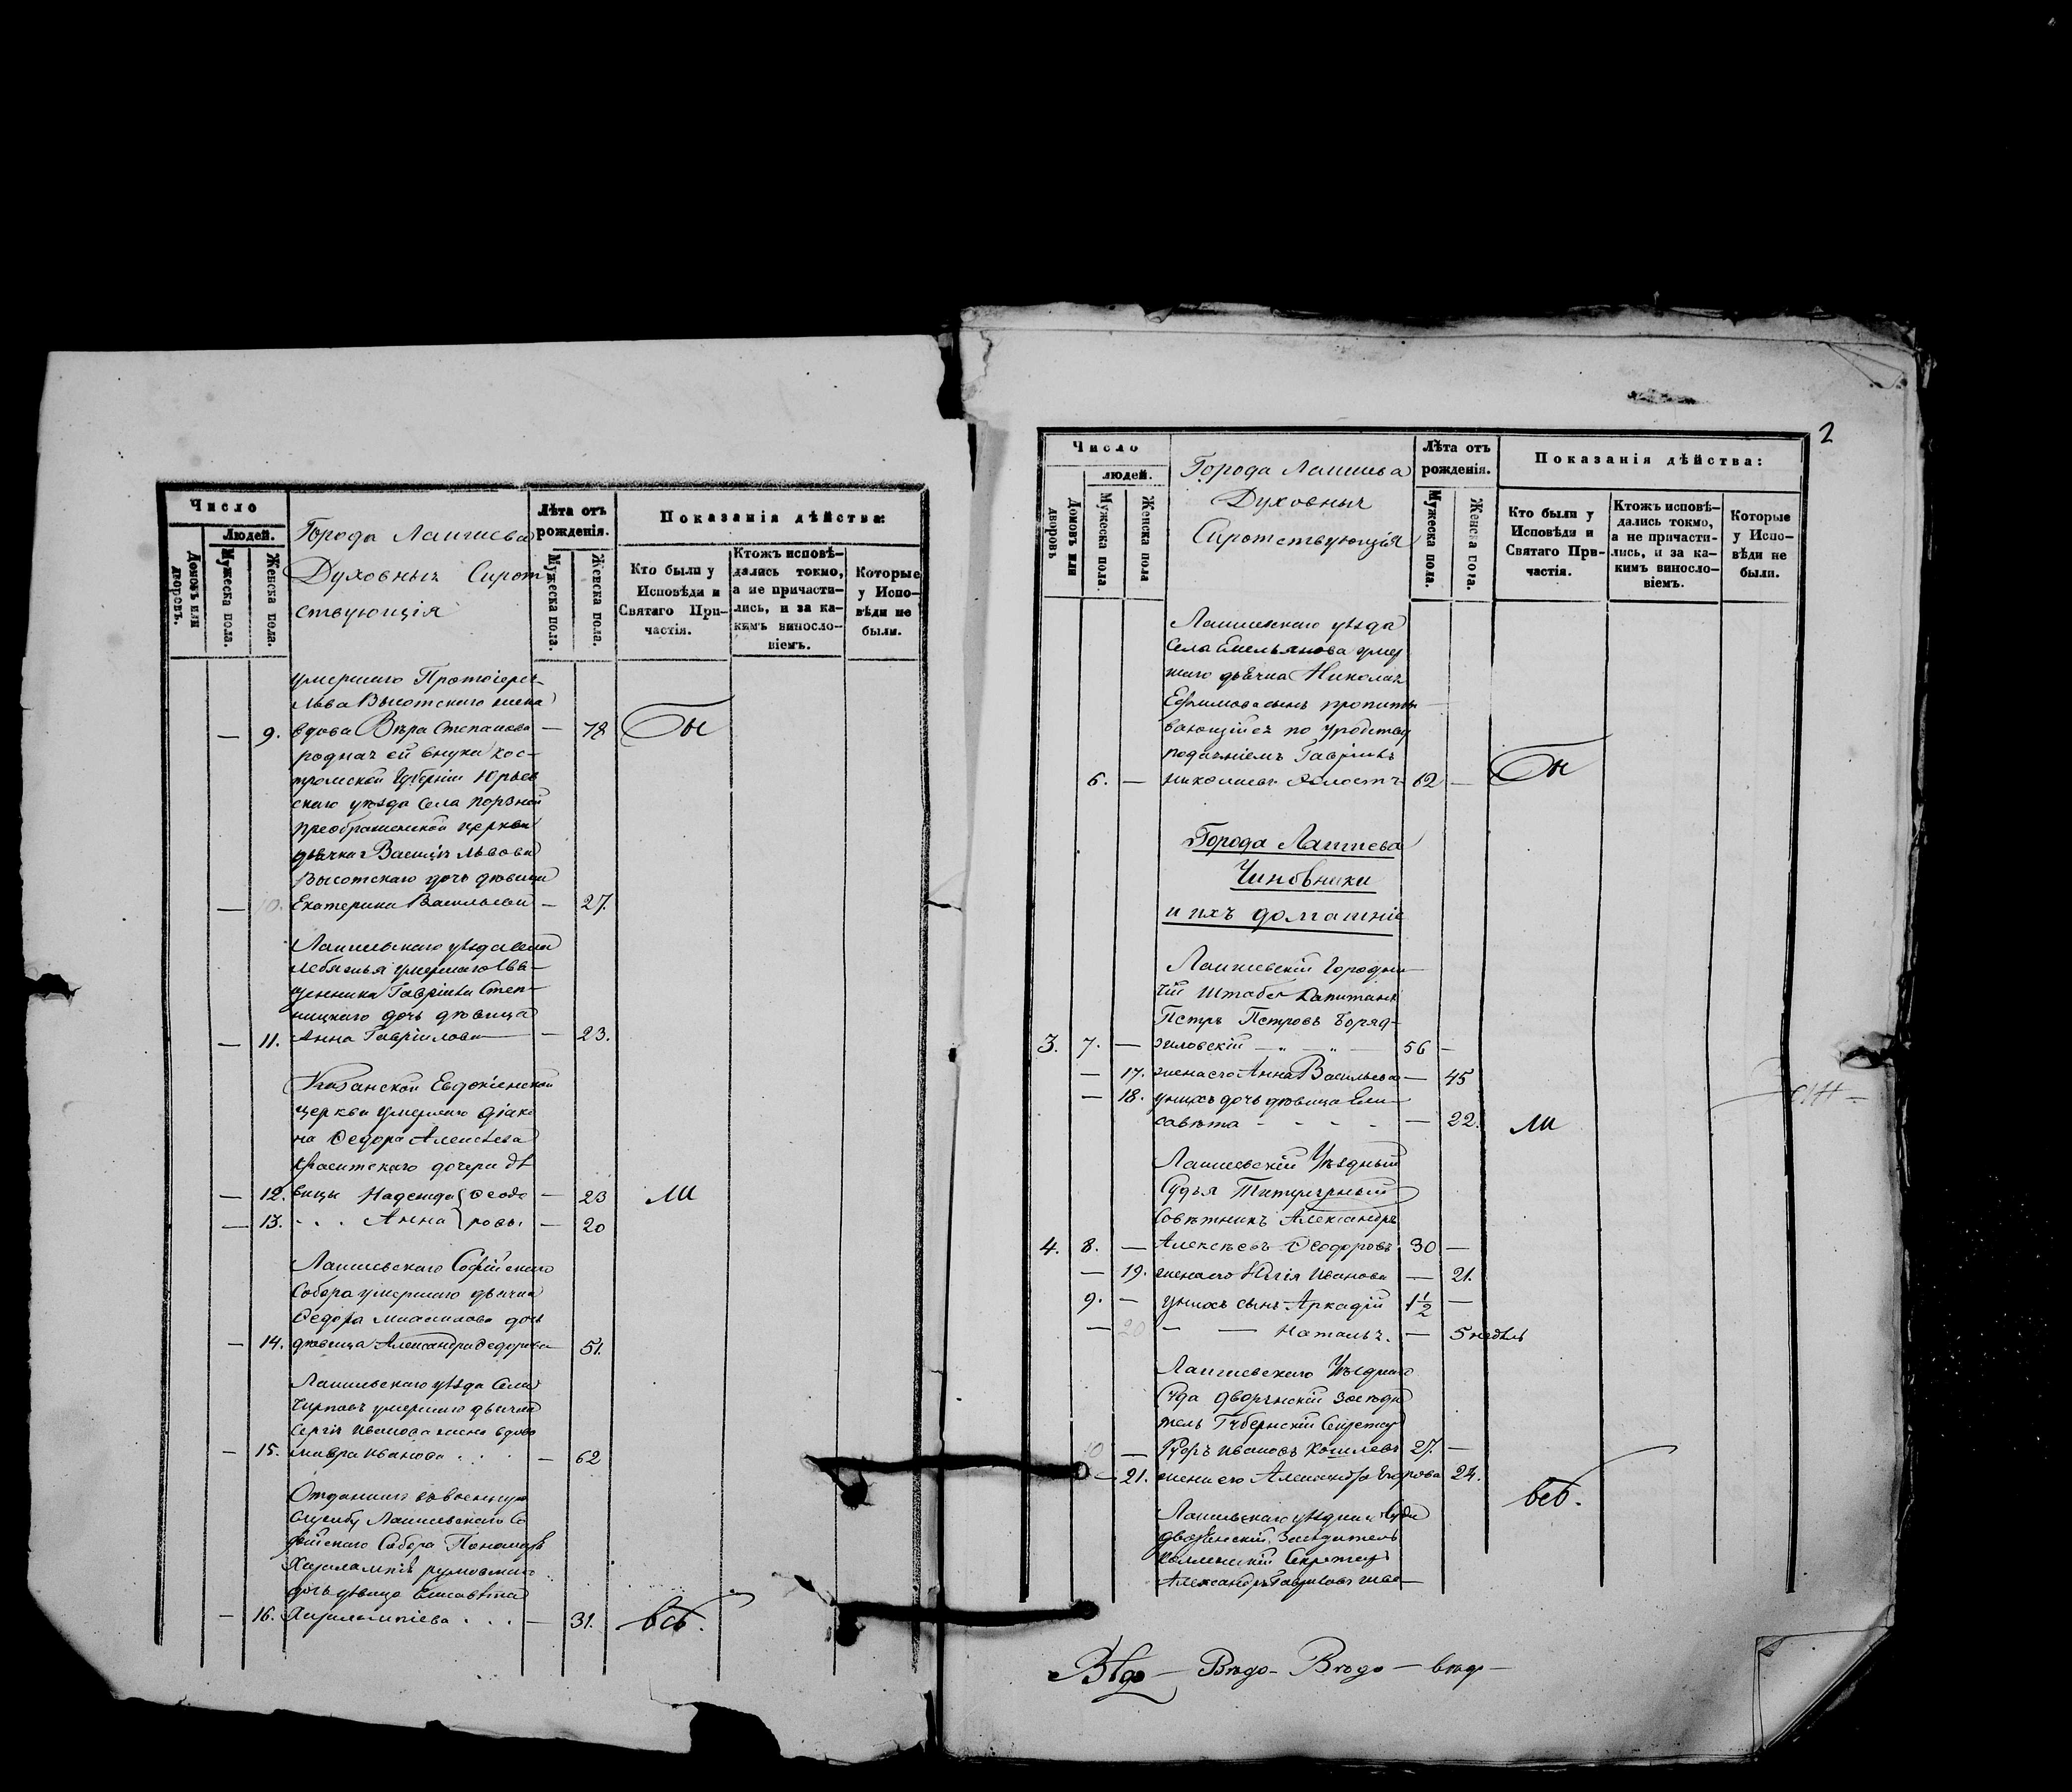 Число
Людей.
Домовъ или дворовъ.
Мужеска пола.
Женска пола.
Города Лаишева
Духовныя Сирот
ствующія
Лѣта отъ рожденія.
Мужеска пола.
Женска пола.
Показанія дѣйства:
Кто были у Исповѣди и Святаго Причастія.
Ктожъ исповѣдались токмо, а не причастились, и за какимъ винословіемъ.
Которые у Исповѣди не были.
умершаго Протоіерея
Льва Высотскаго жена
— 9. вдова Вѣра Степанова — 78 Бы
родная ей внука Кос-
тромской Губерніи Юрьев
скаго уѣзда Села
преображенской церкви
дьячка Василія Львова
Высотскаго дочь дѣвица
— 10. Екатерина Васильева — 27.
Лаишевскаго уѣзда села
умершаго Свя-
щенника Гавріила Степ-
ницкаго дочь дѣвица
— 11. Анна Гаврилова — 23.
Казанской Евдокіинской
церкви умершаго діако
на Федора Алексѣева
дочери дѣ
— 12. вицы Надежда Феодо — 23 ли
— 13. Анна ровы — 20
Лаишевскаго Софійскаго
Собора умершаго дьячка
Федора дочь
— 14. дѣвица Александра Федорова 51.
Лаишевскаго уѣзда Села
умершаго дьячка
Сергія Иванова жена вдова
— 15. Мавра Иванова — 62
Отданнаго въ военную
службу Лаишевскаго Со
фійскаго Собора Пономаря
Харалампія
дочь дѣвица Елисавета
— 16. Харалампіева — 31. всѣ.
2
Число
людей.
Домовъ или дворовъ
Мужеска пола
Женска пола
Города Лаишева
Духовныя
Сиротствующія
Лѣта отъ рожденія.
Мужеска пола.
Женска пола.
Показанія дѣйства:
Кто были у Исповѣди и Святаго Причастія.
Ктожъ исповѣдались токмо, а не причастились, и за какимъ винословіемъ.
Которые у Исповѣди не были.
Лаишевскаго уѣзда
Села Емельянова умер
шаго дьячка Николая
Ефимова сынъ пропиты
вающійся по уродству
подаяніемъ Гавріилъ
6. — Николаевъ Холостъ 62 — Бы
Города Лаишева
Чиновники
и ихъ домашніе
Лаишевскій Городни
чій Штабсъ Капитанъ
Петръ Петровъ
3. 7. — 56 —
— 17. жена его Анна Васильева — 45
— 18. у нихъ дочь дѣвица Ели
савета — 22. ли
Лаишевскій Уѣздный
Судья Титулярный
Совѣтникъ Александръ
4. 8. — Алексѣевъ Феодоровъ 30 —
— 19. жена его Юлія Иванова — 21.
9. — у нихъ сынъ Аркадій 1½ —
— 20 — — Наталья. — 5 недѣль
Лаишевскаго Уѣзднаго
Суда дворянскій Засѣда
тель Губернскій Секретарь
10 — Ивановъ 27. —
— 21. жена его Александра Егорова 24.
Лаишевскаго уѣзднаго Суда
дворянскій Засѣдатель
Коллежскій Секретарь
Александръ Гавриловъ
всѣ.
Вѣдо — Вѣдо — Вѣдо — вѣдо —